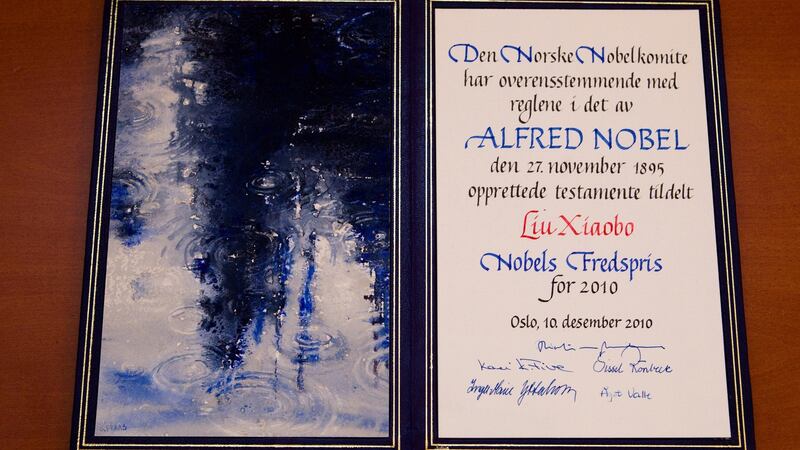 Den Norske Nobelkomite
har overensstemmende med
reglene i det av
ALFRED NOBEL
den 27. november 1895
opprettede testamente tildelt
Liu Xiaobo
Nobels Fredspris
for 2010
Oslo, 10. desember 2010
Sissel Rønbeck
Ågot Valle